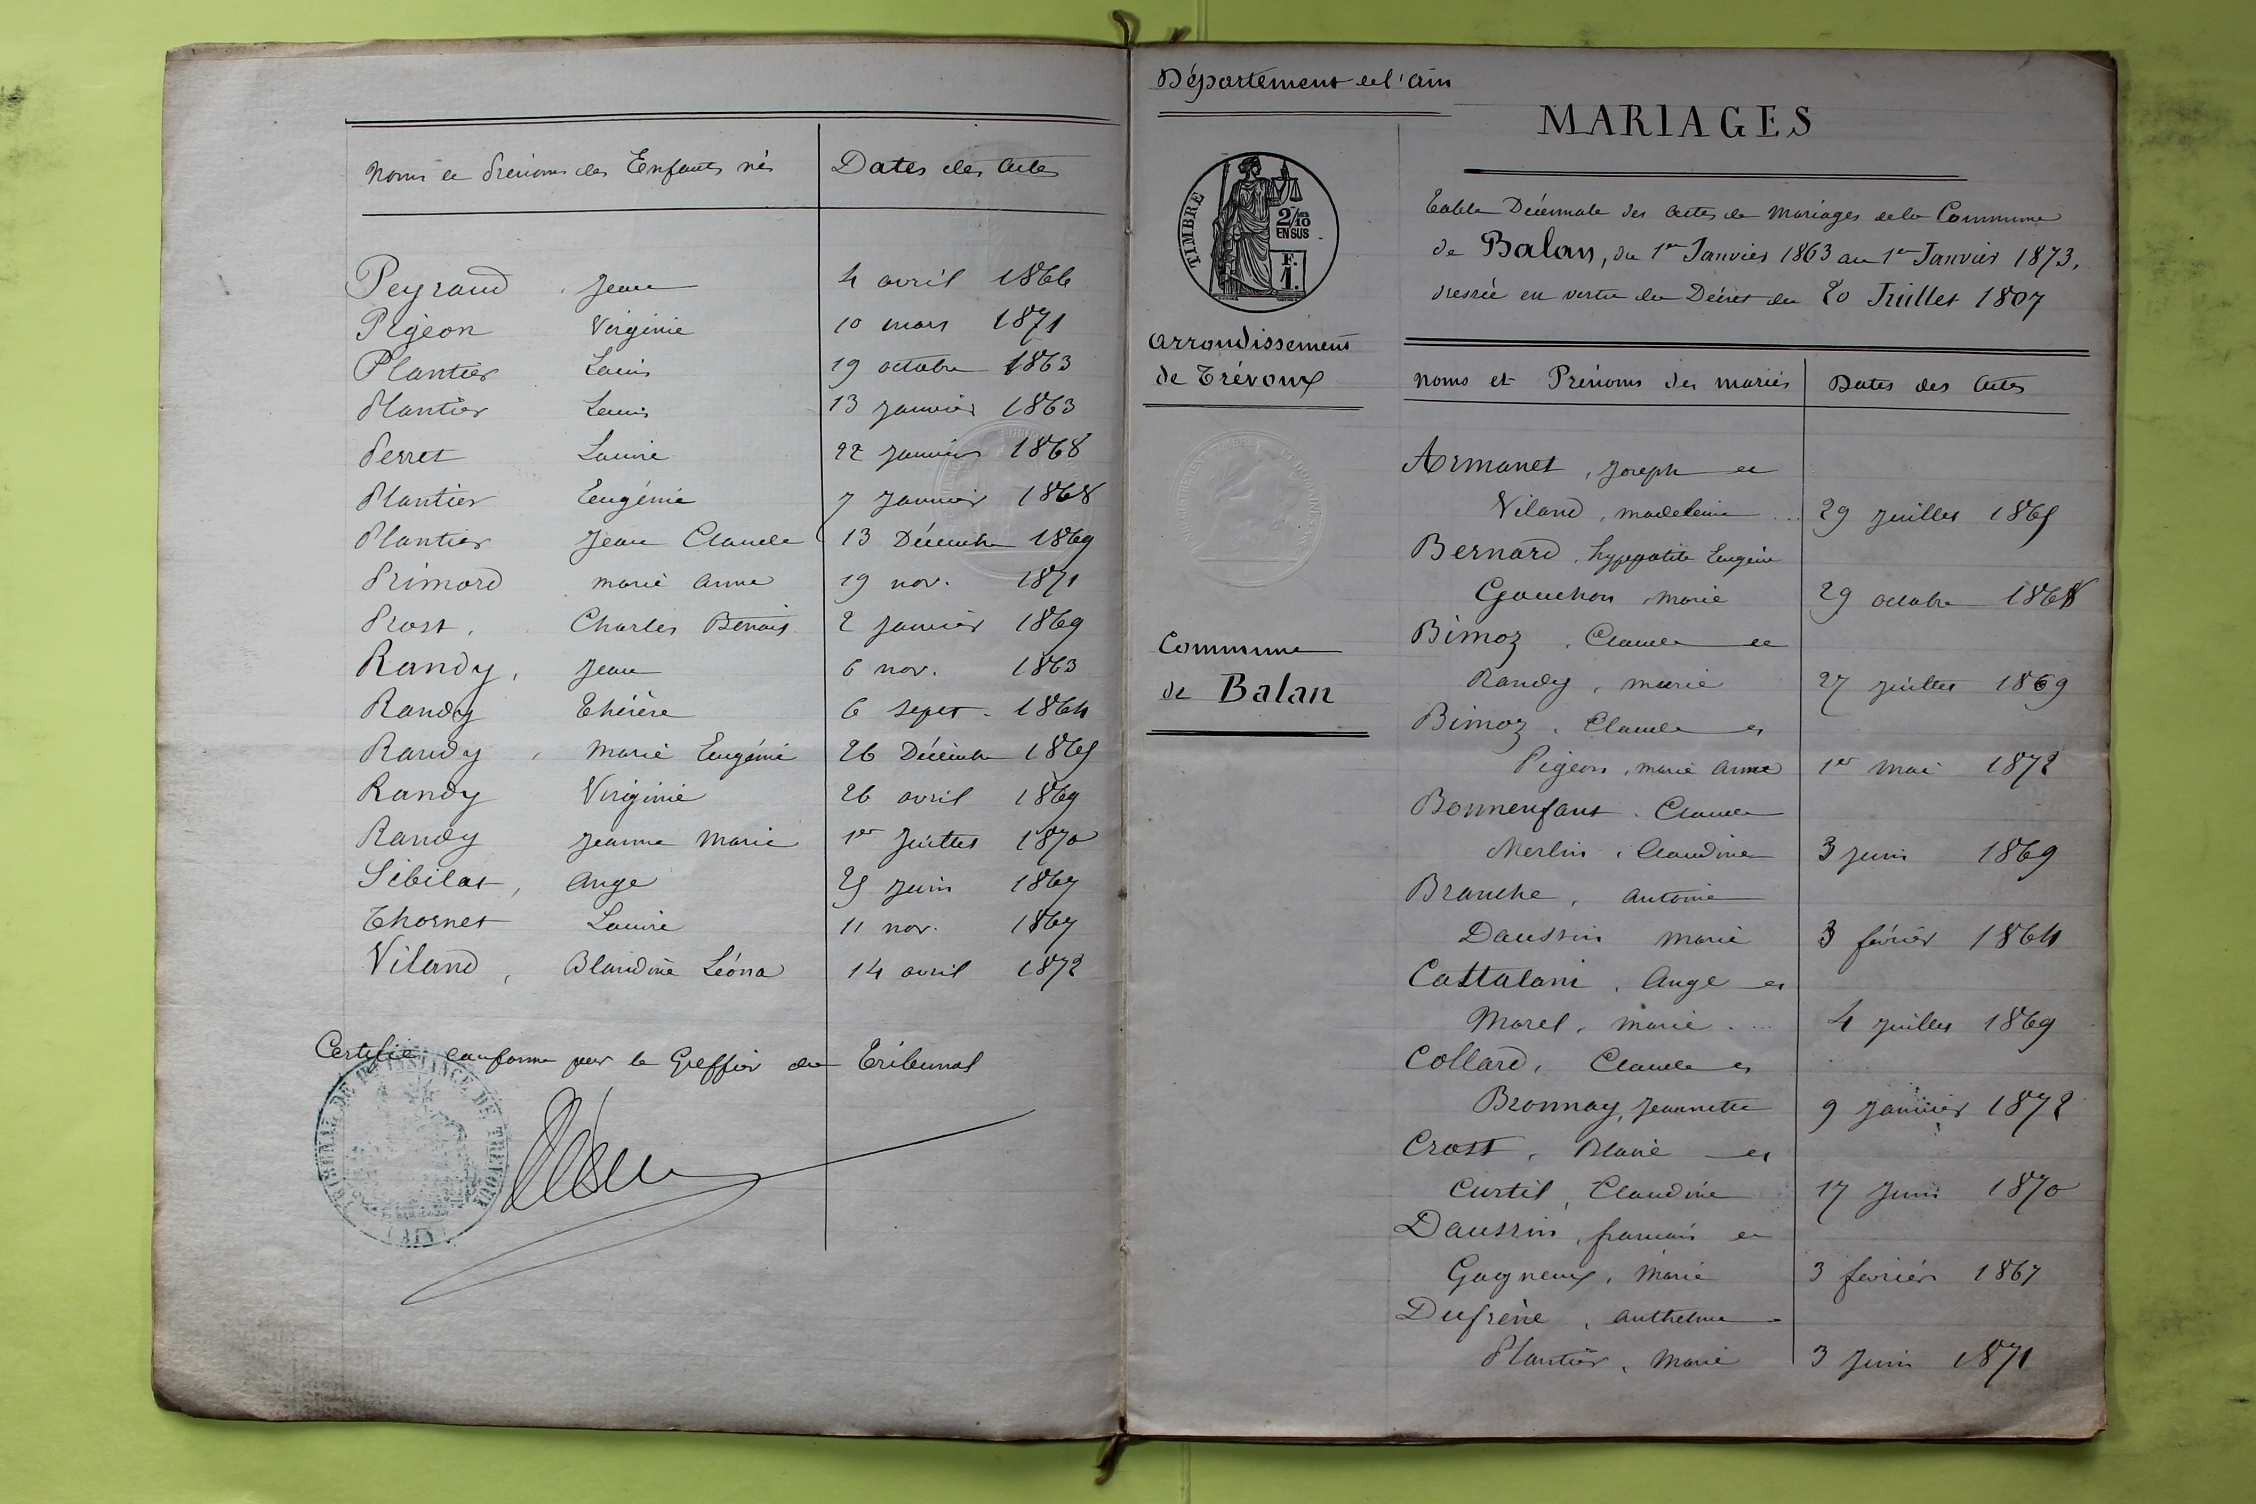 Noms et Prénoms des Enfants nés Dates des Actes
Peyraud, Jean 4 avril 1866
Pigeon Virginie 10 mars 1871
Plantier Louis 19 octobre 1863
Plantier Louis 13 janvier 1863
Perret Louise 22 janvier 1868
Plantier Eugénie 7 janvier 1868
Plantier Jean Claude 13 Décembre 1869
Primard marie anne 19 nov. 1871
Prost, Charles Benois 2 janvier 1869
Randy, Jean 6 nov. 1863
Randy Thérèse 6 sept. 1864
Randy, marie Eugénie 26 Décembre 1865
Randy Virginie 26 avril 1869
Randy Jeanne Marie 1er Juillet 1870
Sibilat, Ange 25 Juin 1867
Thornet Louise 11 nov. 1867
Viland, Blandine Léona 14 avril 1872
Certifié conforme par le Greffier du Tribunal
TRIBUNAL DE 1re INSTANCE DE TREVOUX
(AIN)
Département de l'ain
TIMBRE
2/10
EN SUS
F.
1.
arrondissement
de Trévoux
Commune
de Balan
MARIAGES
Table Décennale des actes de Mariages de la Commune
de Balan, du 1er Janvier 1863 au 1er Janvier 1873,
dressée en vertu du Décret du 20 Juillet 1807
noms et Prénoms des mariés Dates des Actes
Armanet, Joseph et
Viland, madeleine ... 29 juillet 1865
Bernard, hyppolite Eugène
Gouchon, marie 29 octobre 1868
Bimoz, Claude et
Randy, marie 27 juillet 1869
Bimoz, Claude et
Pigeon, marie anne 1er mai 1872
Bonnenfant, Claude
Merlin, Claudine 3 juin 1869
Branche, antoine
Daussin marie 3 février 1864
Cattalani, Ange et
Morel, marie .... 4 juillet 1869
Collard, Claude et
Bronnay, Jeannette 9 janvier 1872
Crost, Blaise et
Curtil, Claudine 17 Juin 1870
Daussin, francois et
Gagneux, Marie 3 février 1867
Dufrène, anthelme
Plantier, Marie 3 Juin 1871